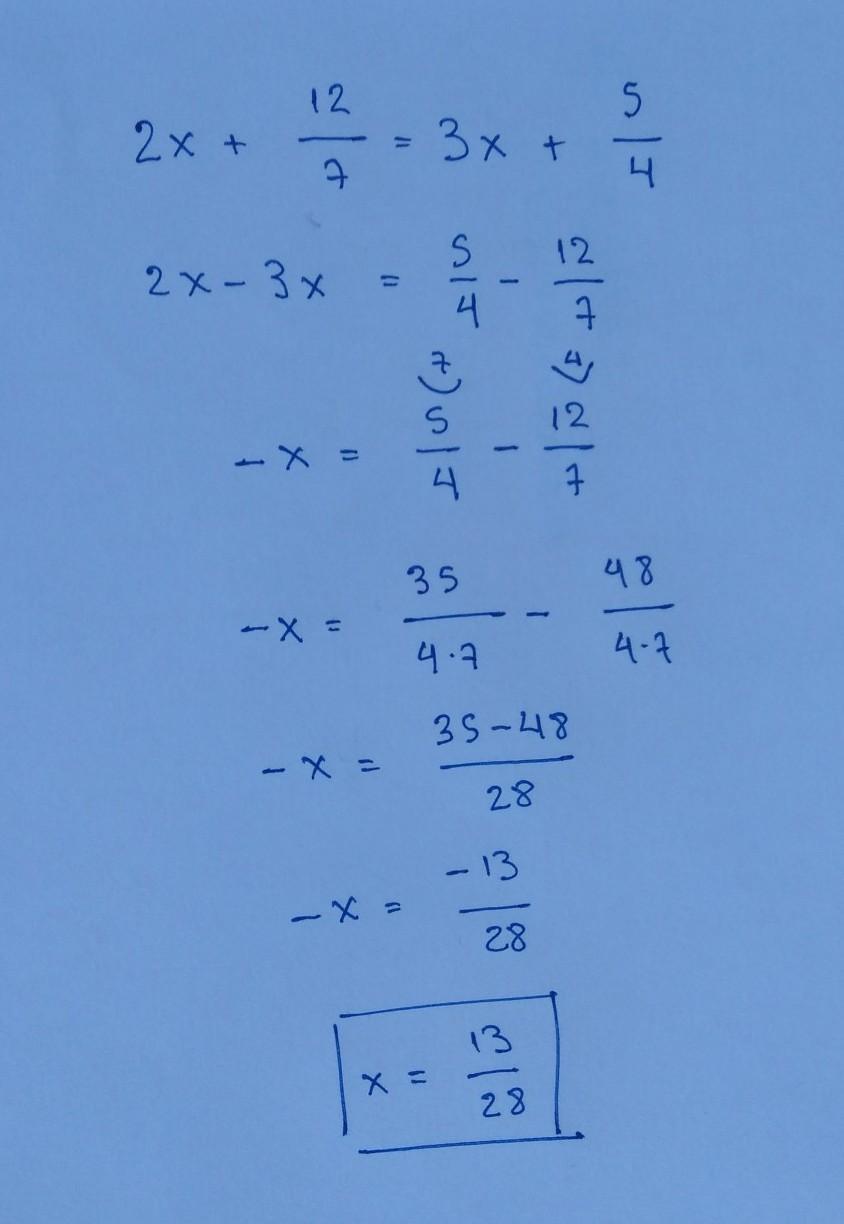 2x + 12/7 = 3x + 5/4
2x - 3x = 5/4 - 12/7
7 4
-x = 5/4 - 12/7
-x = 35/4·7 - 48/4·7
-x = 35-48/28
-x = -13/28
x = 13/28